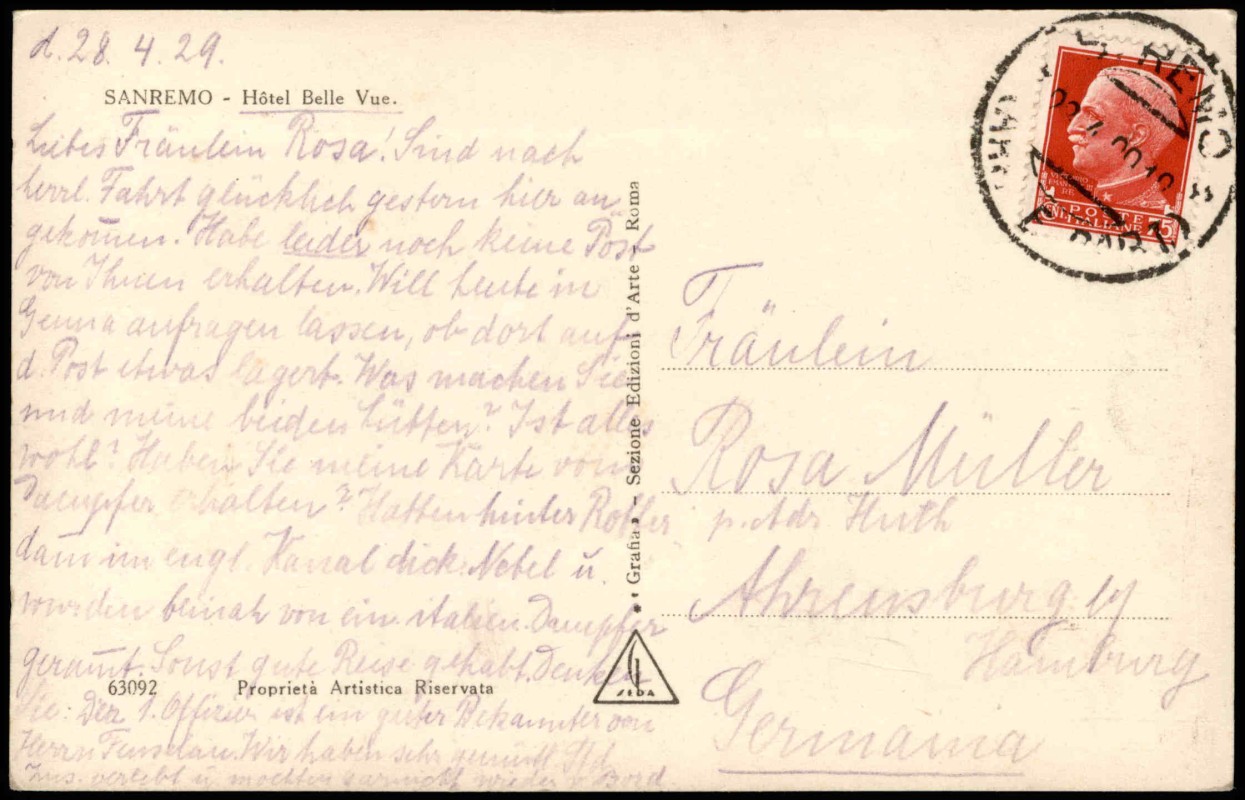 d. 28. 4. 29.
SANREMO - Hôtel Belle Vue.
Liebes Fräulein Rosa! Sind nach
herrl. Fahrt glücklich gestern hier an
gekom̅en. Habe leider noch keine Post
von Ihnen erhalten. Will heute in
Genua anfragen lassen, ob dort auf
d. Post etwas lagert. Was machen Sie
und meine beiden Lütten? Ist alles
wohl? Haben Sie meine Karte vom
Dampfer erhalten? Hatten hinter Rotter
dam im engl. Kanal dick. Nebel u.
wurden beinah von ein italien. Dampfer
geram̅t. Sonst gute Reise gehabt. Denken
Sie: Der 1. Offizier ist ein guter Bekannter von
Herrn Wir haben sehr gemütl. Std.
zus. verlebt u. mochten garnicht wieder v. Bord.
63092 Proprietà Artistica Riservata
« Grafia » - Sezione Edizioni d'Arte - Roma
SEDA
POSTE
ITALIANE
75
Fräulein
Rosa Müller
p. Adr. Huth
Ahrensburg by
Hamburg
Germania